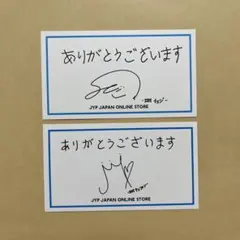 ありがとうございます
JYP JAPAN ONLINE STORE
ありがとうございます
JYP JAPAN ONLINE STORE